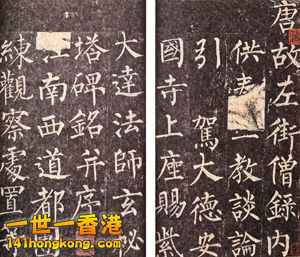 唐故左街僧錄內
供 教談論
引 駕大德安
國寺上座賜紫
大達法師玄秘
塔碑銘并序
江南西道都團
練觀察處置
一世一香港
141hongkong.com